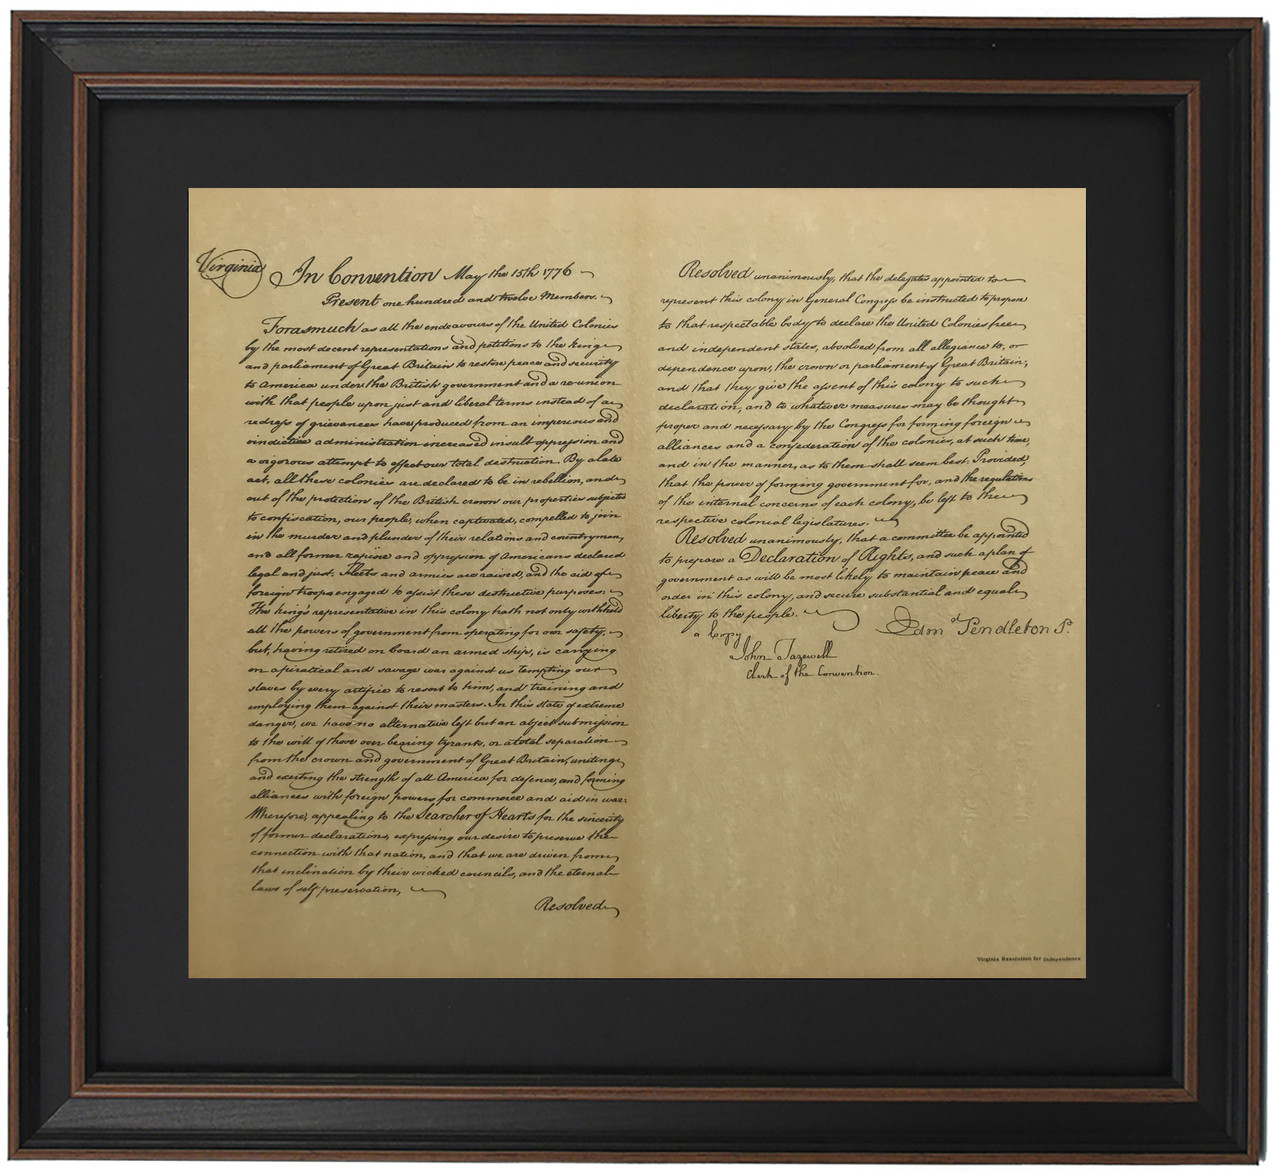 Virginia
In Convention May the 15th 1776
Present one hundred and twelve Members.
Forasmuch as all the endeavours of the United Colonies
by the most decent representations and petitions to the king
and parliament of Great Britain to restore peace and security
to America under the British government and a re-union
with that people upon just and liberal terms instead of a
redress of grievances have produced from an imperious and
vindictive administration increased insult oppression and
a vigorous attempt to effect our total destruction. By a late
act, all these colonies are declared to be in rebellion, and
out of the protection of the British crown our properties subjected
to confiscation, our people, when captivated, compelled to join
in the murder and plunder of their relations and countrymen,
and all former rapine and oppression of Americans declared
legal and just. Fleets and armies are raised, and the aid of
foreign troops engaged to assist these destructive purposes.
The king's representative in this colony hath not only withheld
all the powers of government from operating for our safety,
but, having retired on board an armed ship, is carrying
on a piratical and savage war against us tempting our
slaves by every artifice to resort to him, and training and
employing them against their masters. In this state of extreme
danger, we have no alternative left but an abject submission
to the will of those over bearing tyrants, or a total separation
from the crown and government of Great Britain, uniting
and exerting the strength of all America for defence, and forming
alliances with foreign powers for commerce and aid in war:
Wherefore, appealing to the Searcher of Hearts for the sincerity
of former declarations, expressing our desire to preserve the
connection with that nation, and that we are driven from
that inclination by their wicked councils, and the eternal
laws of self preservation,
Resolved
Resolved unanimously, that the delegates appointed to
represent this colony in General Congress be instructed to propose
to that respectable body to declare the United Colonies free
and independent states, absolved from all allegiance to, or
dependence upon, the crown or parliament of Great Britain;
and that they give the assent of this colony to such
declaration, and to whatever measures may be thought
proper and necessary by the Congress for forming foreign
alliances and a confederation of the colonies, at such time,
and in the manner, as to them shall seem best. Provided,
that the power of forming government for, and the regulations
of the internal concerns of each colony, be left to the
respective colonial legislatures.
Resolved unanimously, that a committee be appointed
to prepare a Declaration of Rights, and such a plan of
government as will be most likely to maintain peace and
order in this colony, and secure substantial and equal
liberty to the people.
Edmd Pendleton P.
a Copy
John Tazewell
Clerk of the Convention.
Virginia Resolution for Independence